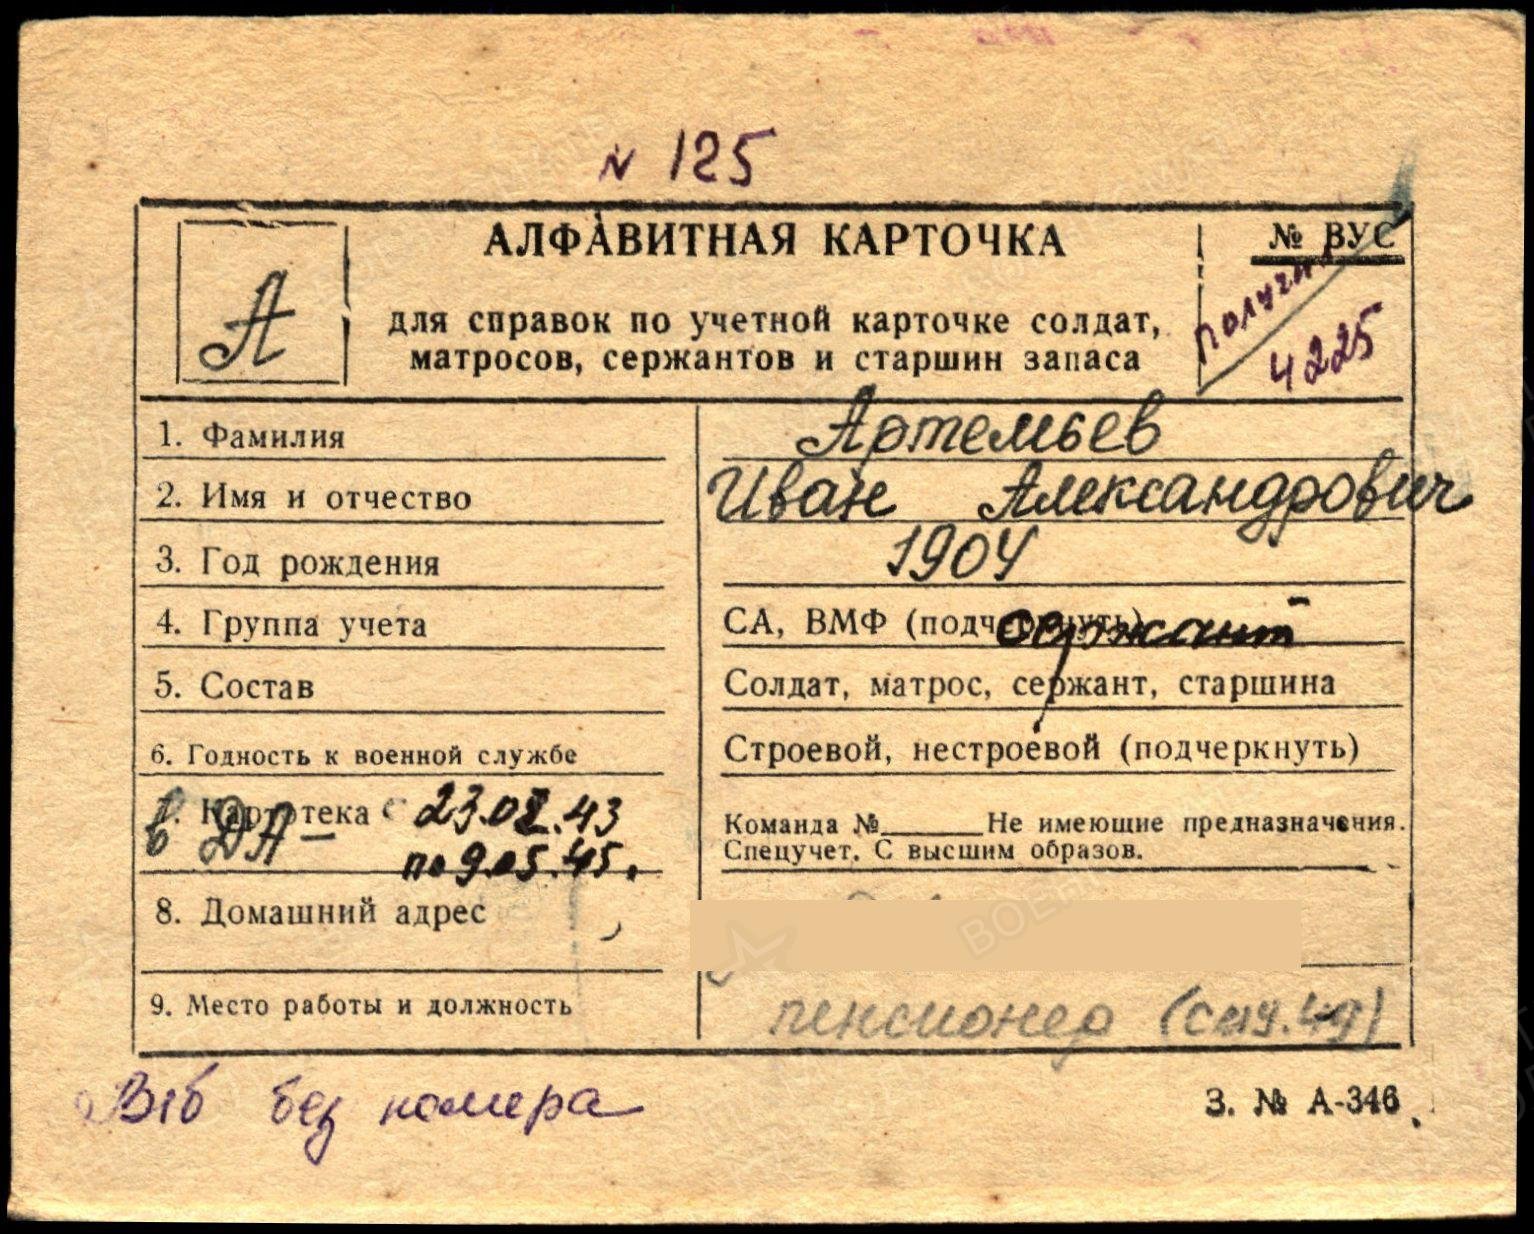 N 125
А
АЛФАВИТНАЯ КАРТОЧКА
для справок по учетной карточке солдат,
матросов, сержантов и старшин запаса
№ ВУС
4225
1. Фамилия
Артемьев
2. Имя и отчество
Иван Александрович
3. Год рождения
1904
4. Группа учета
СА, ВМФ (подчеркнуть)
сержант
5. Состав
Солдат, матрос, сержант, старшина
6. Годность к военной службе
Строевой, нестроевой (подчеркнуть)
7. Картотека
с 23.02.43
в ДА —
по 9.05.45.
Команда №______Не имеющие предназначения.
Спецучет. С высшим образов.
8. Домашний адрес
9. Место работы и должность
пенсионер
В/б без номера
З. № А-346